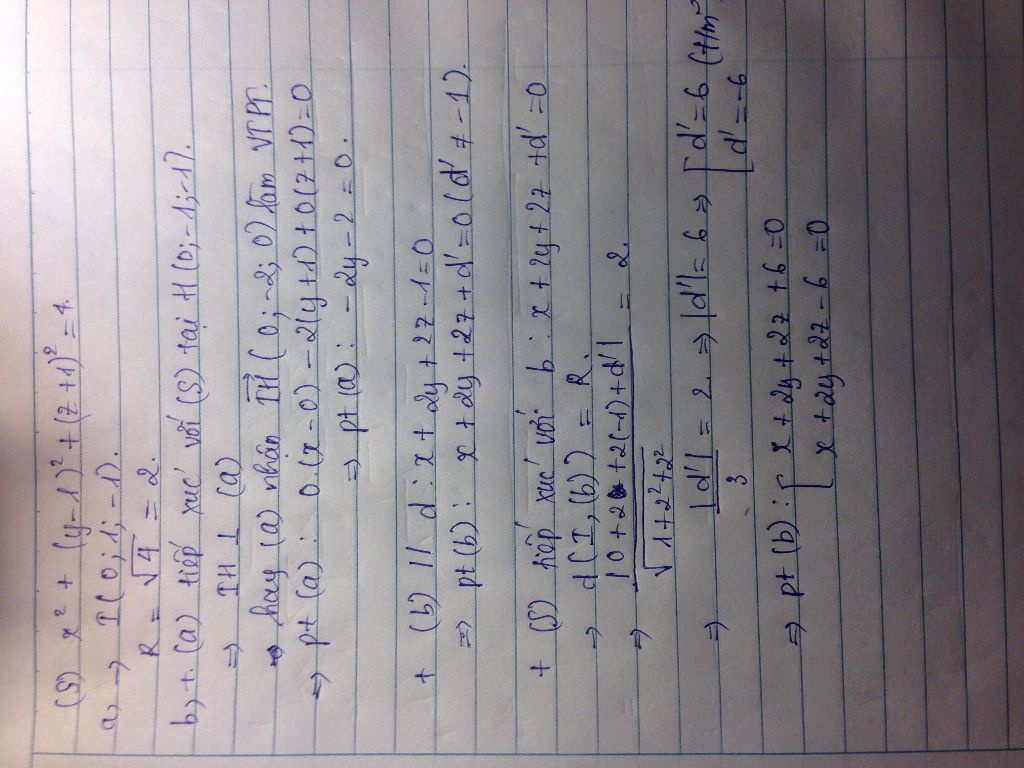 (S) x² + (y-1)² + (z+1)² = 4.
a, → I(0;1;-1).
R = √4 = 2.
b, + (a) tiếp xúc với (S) tại H(0;-1;-1).
⇒ IH ⊥ (a)
hay (a) nhận IH (0;-2;0) làm VTPT.
⇒ pt (a): 0.(x-0) - 2(y+1) + 0(z+1) = 0
⇒ pt (a): -2y - 2 = 0.
+ (b) // d : x + 2y + 2z - 1 = 0
⇒ pt (b): x + 2y + 2z + d' = 0 (d' ≠ -1).
+ (S) tiếp xúc với b : x + 2y + 2z + d' = 0
⇒ d(I,(b)) = R.
⇒ |0 + 2 + 2(-1) + d'| / √(1 + 2² + 2²) = 2.
⇒ |d'| / 3 = 2. ⇒ |d'| = 6 ⇒ [ d' = 6 (t/m
[ d' = -6
⇒ pt (b): [ x + 2y + 2z + 6 = 0
x + 2y + 2z - 6 = 0